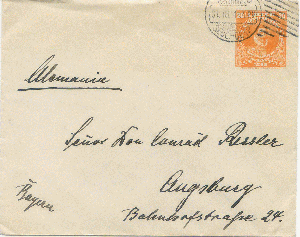 Alemania
Señor Don Conrad Ressler
Augsburg
Bayern
Bahnhofstraße 24.